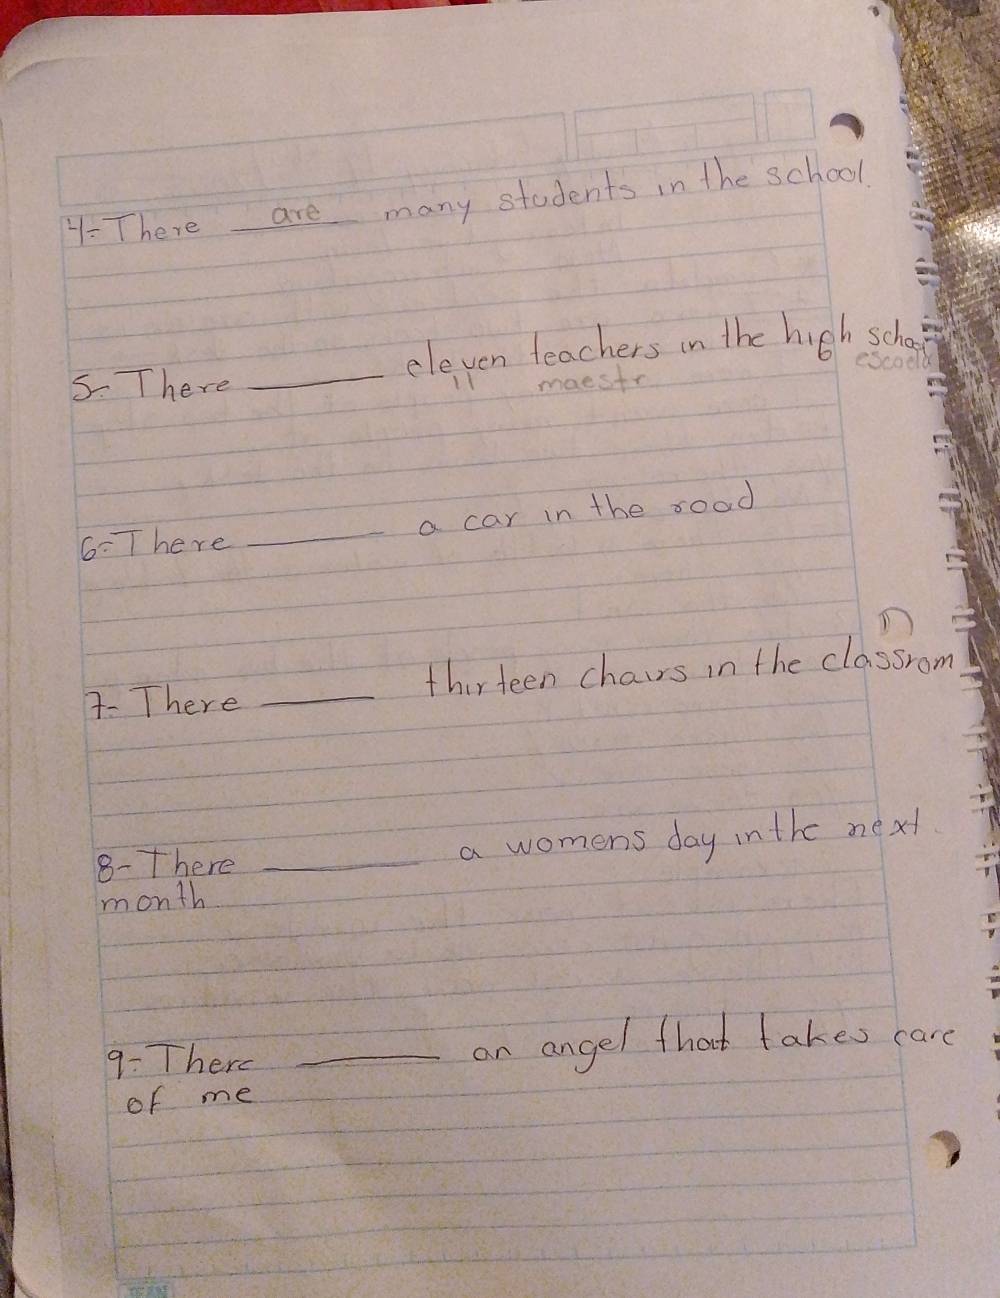 4- There are many students in the school.
5- There ______ eleven teachers in the high school
11 maestr escoela
6- There ______ a car in the road
7- There ______ thirteen chairs in the classrom
8- There ______ a womens day in the next
month
9- There ______ an angel that takes care
of me
JEAN